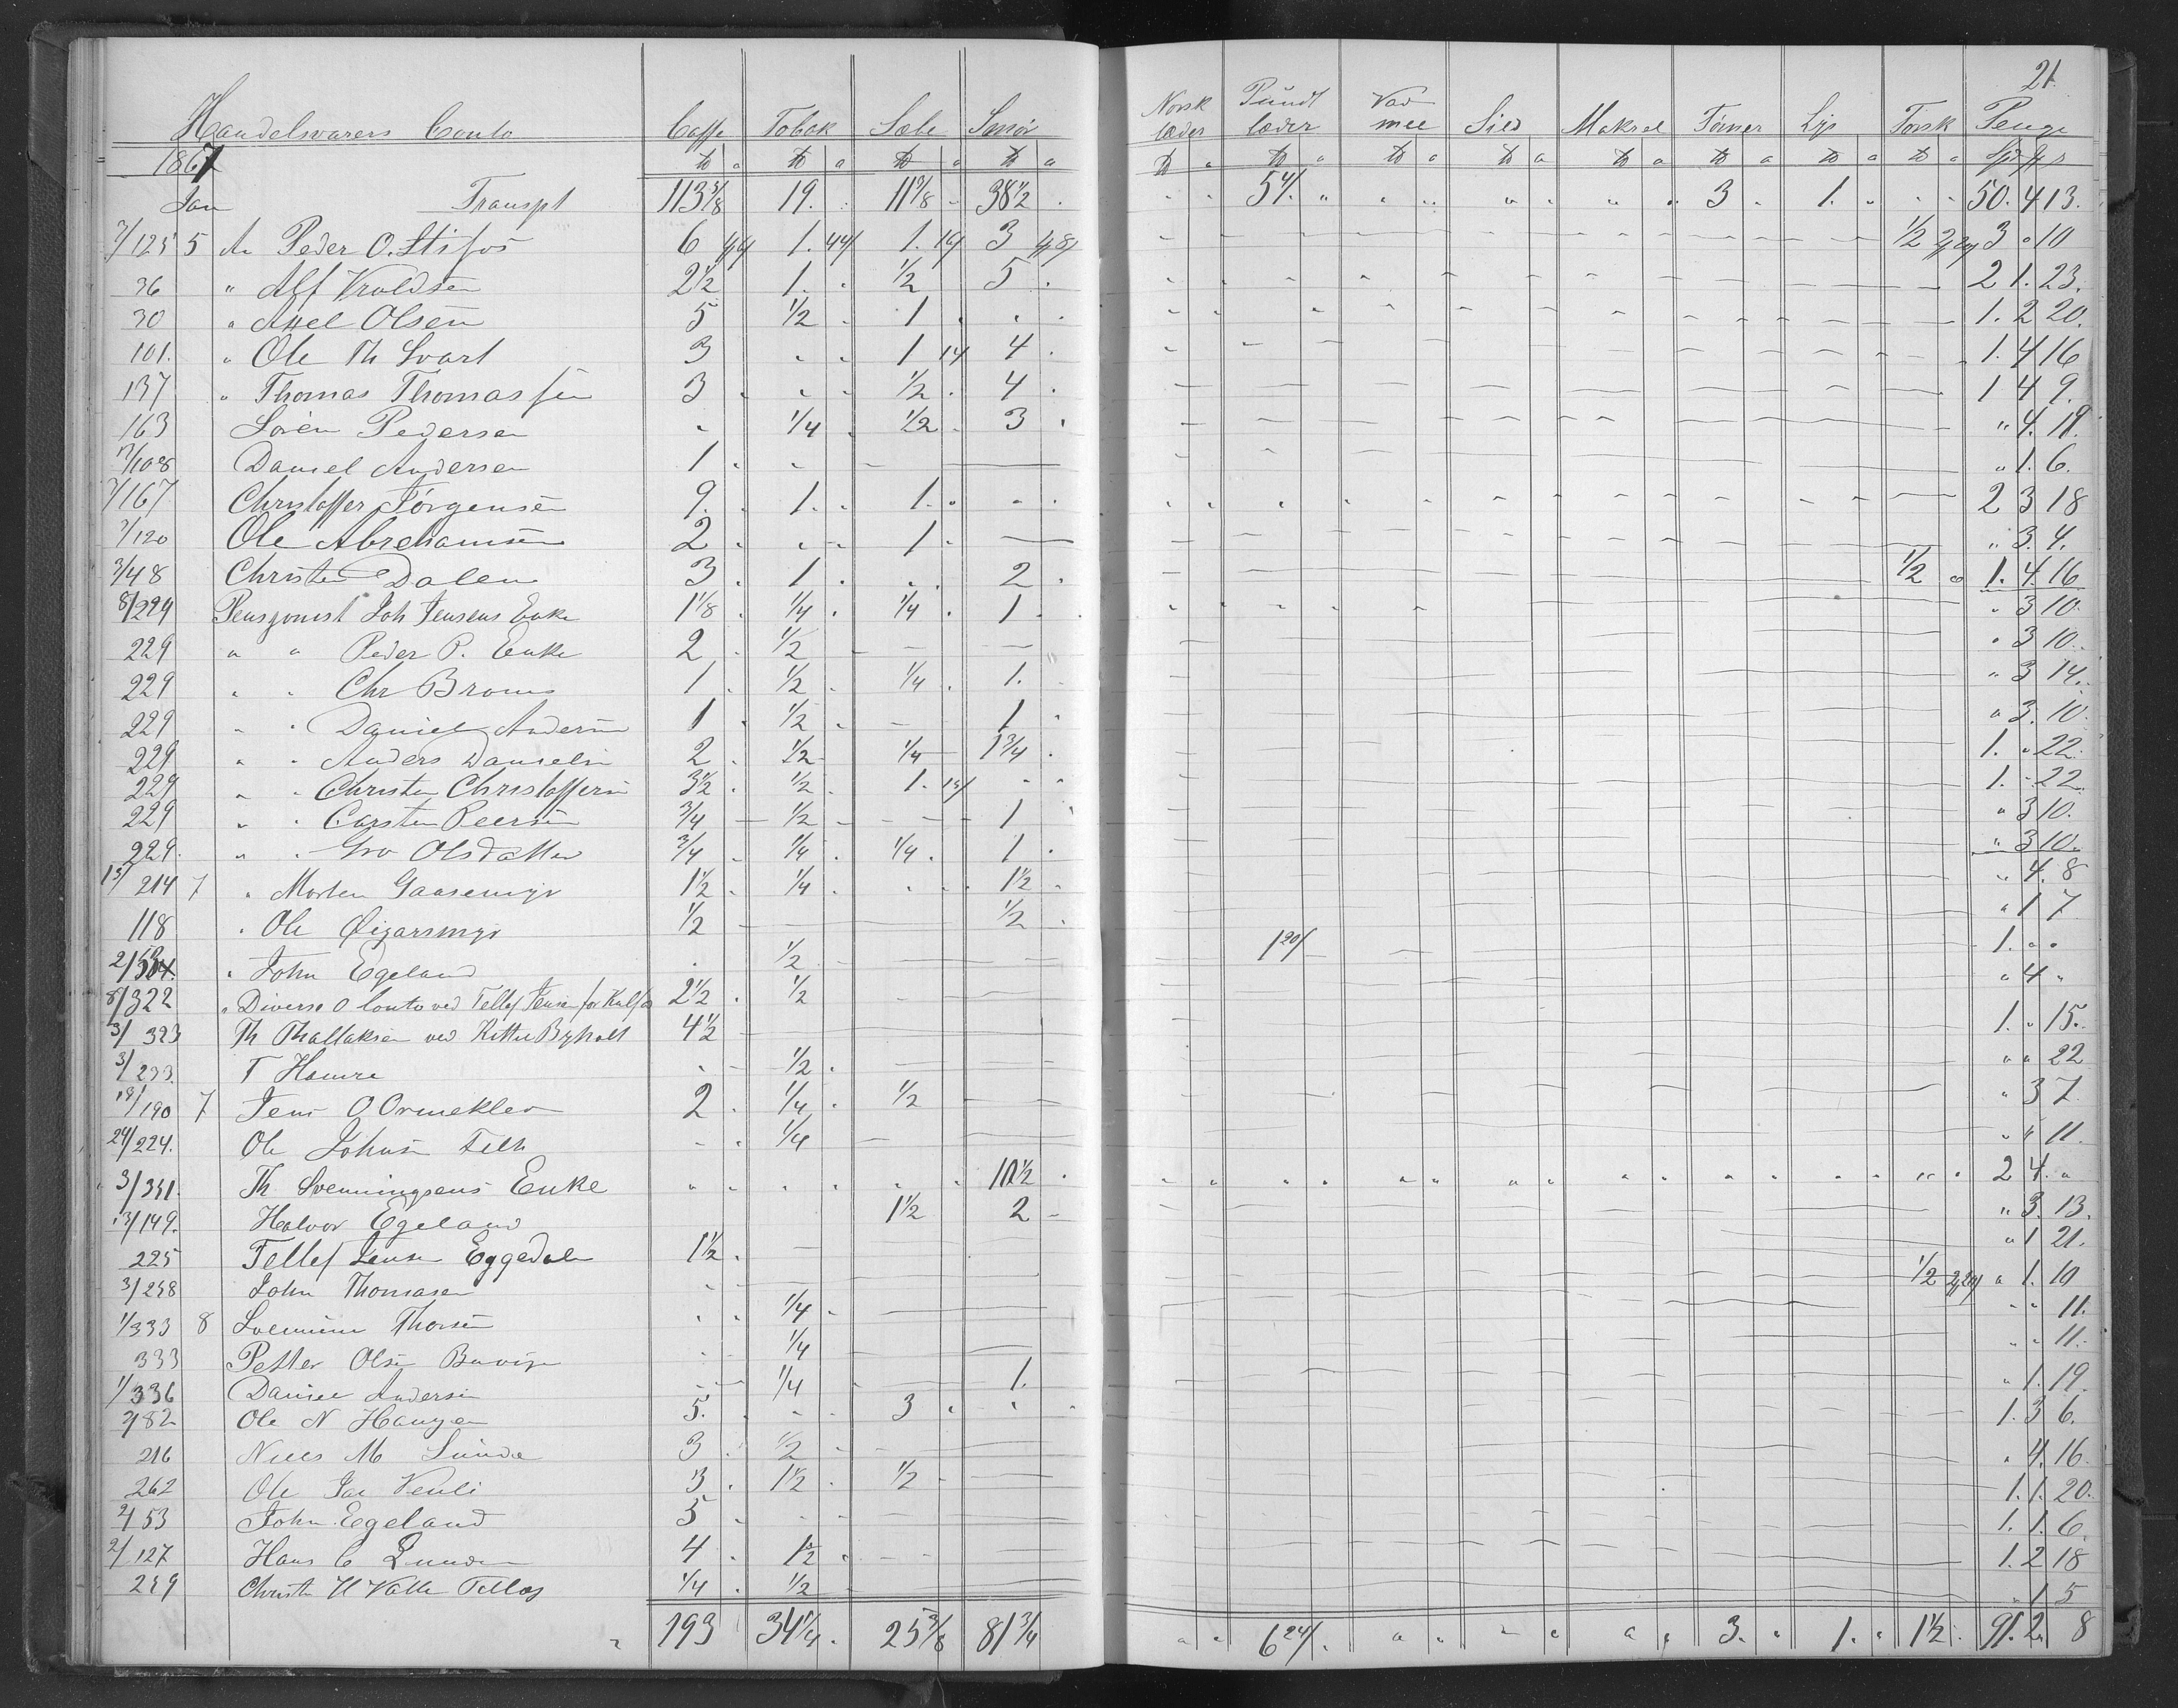 21.
Handelsvarers Conto Caffe Tobak Sæbe Smør Norsk læder Pundt læder Vad mel Sild Makrel Tørner Lys Torsk Penge
1867 ₶ a ₶ a ₶ a ₶ a ₶ a ₶ a ₶ a ₶ a ₶ a ₶ a ₶ a ₶ a Spd ₰ s
Jan Transpt 113 3/8 19. 11 7/8 38 1/2 " " 5 " " " " " " " 3 " 1. " " " 50. 4 13.
7/125 5 An Peder O. Stifos 6 1. 44/ 1. 14/ 3 1/2 3 " 10
36 " Alf Vroldsen 2 1/2 1. 1/2 5 2 1. 23.
30 " Axel Olsen 5 1/2 1 1. 2 20.
101. " Ole Th Svart 3 " " 1 14 4 1. 4 16
137 " Thomas Thomassen 3 " " 1/2 4 1 4 9.
163 Søren Pedersen " 1/4 1/2 3 " 4. 19.
/108 Daniel Andersen 1 " 1. 6.
7/167 Christoffer Jørgensen 9. 1. 1. 2 3 18
7/120 Ole Abrehamsen 2 " " 1 " 3. 4.
3/48 Christen Dalen 3 1 " " 2 1/2 1. 4. 16
8/224 Pensjonist Joh Jensens Enke 1 1/8 1/4 1/4 1 " 3 10.
229 " " Peder P. Enke 2 1/2 " 3 10.
229 " " Chr Broms 1 1/2 1/4 1. " 3 14.
229 " " Daniel Andersen 1 1/2 1 " 3. 10.
229 " " Anders Danielsen 2 1/2 1/4 1 3/4 1. " 22.
229 " " Christen Christoffersen 3 1/2 1/2 1. 14/ " " 1. " 22.
229 " " Carsten Peersen 3/4 1/2 1 " 3 10.
229. " " Gro Olsdatter 3/4 1/4 1/4 1 " 3 10.
13/214 7 " Morten Gaasemyr 1 1/2 1/4 " " 1 1/2 " 4. 8
118 " Ole Øigarsmyr 1/2 1/2 " 1 7
2/ " John Egeland " 1/2 1 20/ 1. " "
8/322 " Diverse O Conto ved Tellef Jensen for Kalfos 2 1/2 1/2 " 4 "
3/323 Th Thallaksen ved Kittil Byholt 4 1/2 1. " 15.
3/233. T Hamre " 1/2 " " 22
18/190 7 Jens O Ormeklev 2 1/4 1/2 " 3 7.
24/224. Ole Johnsen 1/4 " " 11.
3/331. Th Svenningsens Enke " " " " " " 10 1/2 2 4. "
13/149. Halvor Egeland 1 1/2 2 " 3. 13.
225 Tellef Jensen Eggedalen 1 1/2 " 1 21.
3/258 John Thomasen 1/2 " 1. 10
1/333 8 Svennum Thorsen " " 1/4 " " 11.
333 Petter Olsen 1/4 " " 11.
1/336 Daniel Andersen 1/4 1. " 1. 19.
2/82 Ole N Haugen 5. " " 3 1. 3 6.
216 Niels M Lunde 3 1/2 " 4. 16.
262 Ole Jac Venli 3 1 1/2 1/2 1. 1. 20.
2/53 John Egeland 5 1. 1. 6.
2/127 Hans C Lunden 4 1 1/2 1. 2 18
259 Christen H Valle 1/4 1/2 " 1 5
193 34 1/4 25 3/8 81 3/4 " " 6 24/ " " " " " " 3. " 1. " 1 1/2 91. 2. 8